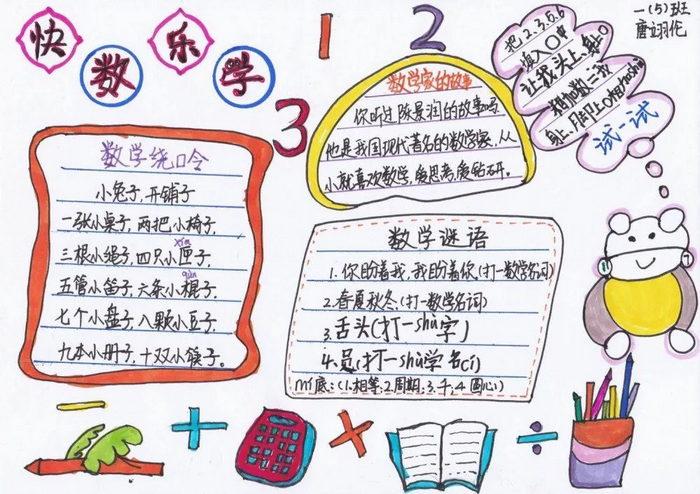 快数乐学
1 2 3
一(5)班
唐诩伦
数学绕口令
小兔子,开铺子
一张小桌子,两把小椅子,
三根小绳子,四只小匣子,
xiá
五管小笛子,六条小棍子,
gùn
七个小盘子,八颗小豆子,
九本小册子,十双小筷子。
数学家的故事
你听过陈景润的故事吗
他是我国现代著名的数学家,从
小就喜欢数学,爱思考,爱钻研。
把1,2,3,5,6
填入○中
让我头上、身上○
试一试
数学谜语
1.你盼着我,我盼着你(打一数学名词)
2.春夏秋冬(打一数学名词)
3.舌头(打一shù字)
4.员(打一shù学名cí)
mí底:(1.相等;2.周期;3.千;4.圆心)
- + × ÷